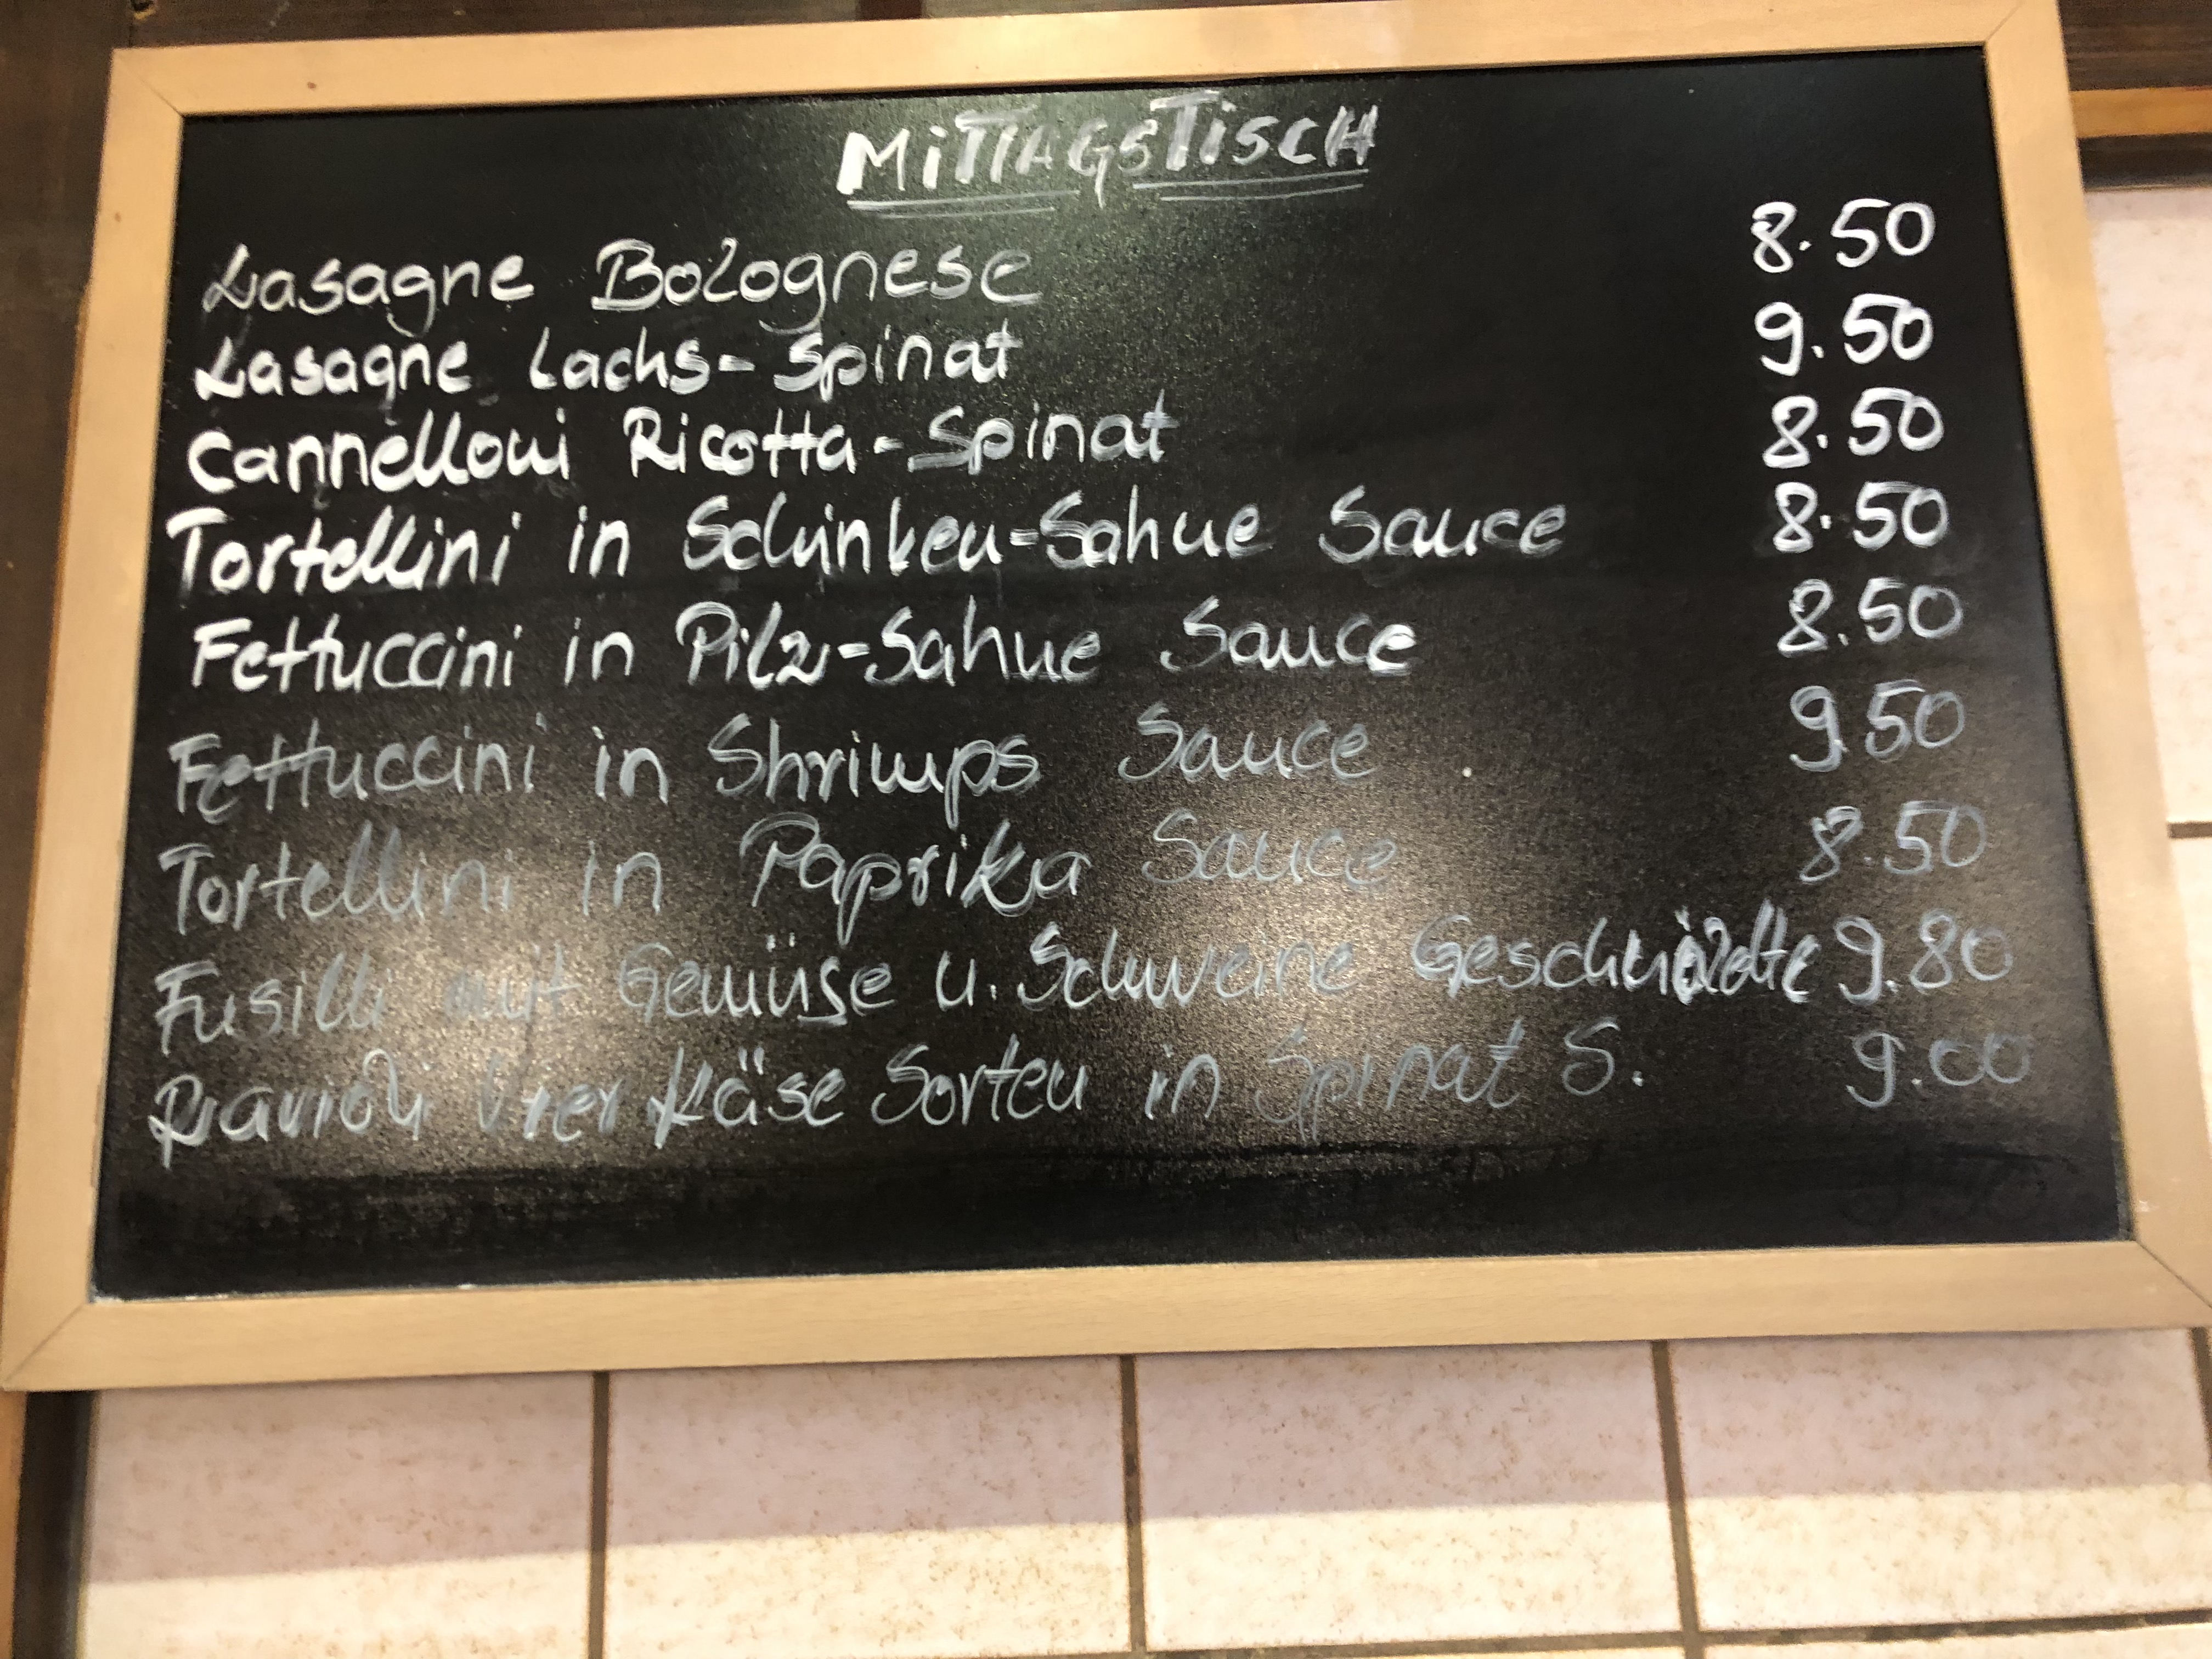 MITTAGSTISCH
Lasagne Bolognese 8.50
Lasagne Lachs-Spinat 9.50
Cannelloni Ricotta-Spinat 8.50
Tortellini in Schinken-Sahne Sauce 8.50
Fettuccini in Pilz-Sahne Sauce 8.50
Fettuccini in Shrimps Sauce 9.50
Tortellini in Paprika Sauce 8.50
Fusilli mit Gemüse u. Schweine 9.80
Ravioli Vier Käse Sorten in Spinat S. 9.00